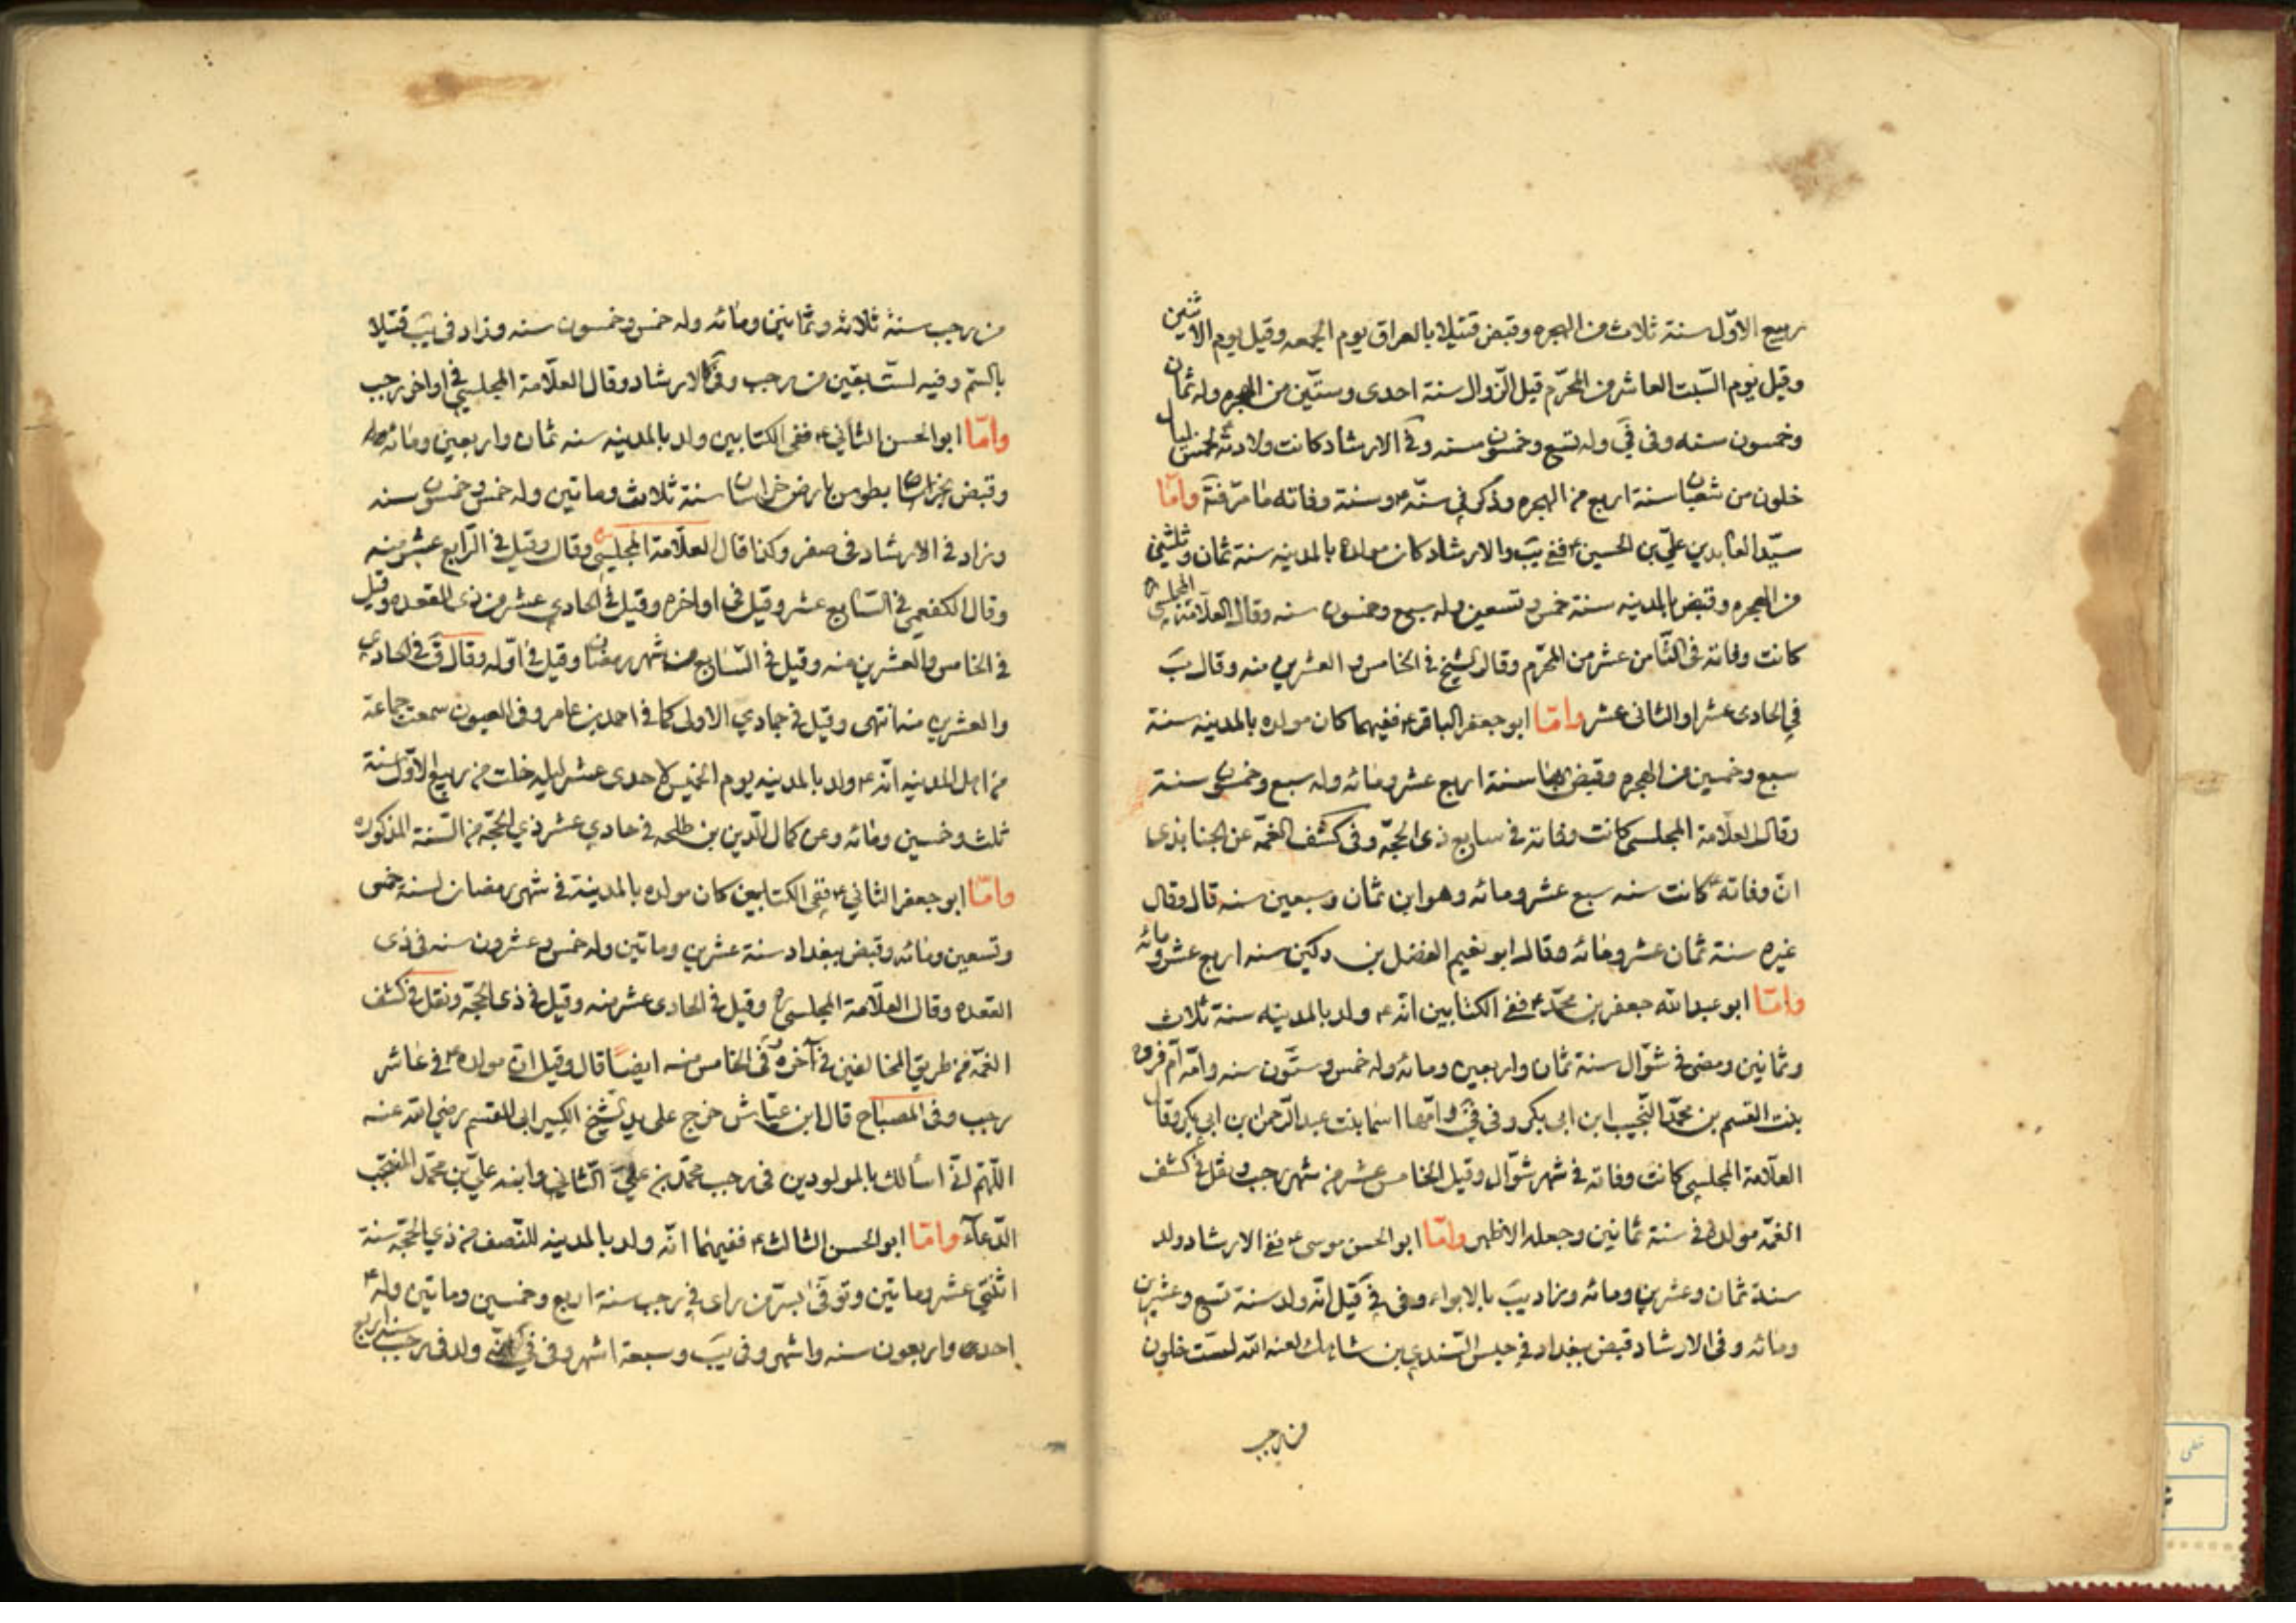 ربيع الاوّل سنة ثلاث من الهجره وقبض قتيلا بالعراق يوم الجمعه وقيل يوم الاثنين
وقيل يوم السّبت العاشر من المحرّم قبل الزّوال سنة احدى وستّين من الهجره وله ثمان
وخمسون سنه وفى فى وله تسع وخمسون سنه وفى الارشاد كانت ولادته لخمس ليال
خلون من شعبان سنة اربع من الهجره وذكر فى سنّه ع وسنة وفاته ما مرّ فى واما
سيّد العابدين علىّ بن الحسين ع ففى يب والارشاد كان مولده بالمدينه سنة ثمان وثلثين
من الهجره وقبض بالمدينه سنة خمس وتسعين وله سبع وخمسون سنه وقال العلّامة المجلسى
كانت وفاته فى الثّامن عشر من المحرّم وقال الشيخ فى الخامس والعشرين منه وقال يب
فى الحادى عشر او الثانى عشر وامّا ابو جعفر الباقر ع ففيهما كان مولده بالمدينه سنة
سبع وخمسين من الهجره وقبض بها سنة اربع عشر ومائه وله سبع وخمسون سنة
وقال العلّامة المجلسى كانت وفاته فى سابع ذى الحجّه وفى كشف الغمّه عن الجنابذى
انّ وفاته ع كانت سنه سبع عشر ومائه وهو ابن ثمان وسبعين سنه قال وقال
غيره سنة ثمان عشر ومائه وقال ابو نعيم الفضل بن دكين سنه اربع عشر ومائه
وامّا ابو عبد الله جعفر بن محمّد ع ففى الكتابين انّه ع ولد بالمدينه سنة ثلاث
وثمانين ومضى فى شوّال سنة ثمان واربعين ومائه وله خمس وستّون سنه وامّه امّ فروه
بنت القسم بن محمّد النّجيب ابن ابى بكر وفى فى وامّها اسما بنت عبد الرّحمن بن ابى بكر وقال
العلّامة المجلسى كانت وفاته فى شهر شوّال وقيل الخامس عشر من شهر رجب ونقل فى كشف
الغمّه مولده فى سنة ثمانين وجعله الاظهر وامّا ابو الحسن موسى ع ففى الارشاد ولد
سنة ثمان وعشرين ومائه وزاد يب بالابواء وفى فى قيل انّه ولد سنة تسع وعشرين
ومائه وفى الارشاد قبض ببغداد فى حبس السّندى بن شاهك لعنه الله لست خلون
من رجب
من رجب سنة ثلاثه وثمانين ومائه وله خمس وخمسون سنه وزاد فى يب قتيلا
بالسّم وفيه لستّ بقين من رجب وفى كالارشاد وقال العلّامة المجلسى فى اواخر رجب
وامّا ابو الحسن الثانى ع ففى الكتابين ولد بالمدينه سنه ثمان واربعين ومائه
وقبض بخراسان بطوس بارض خراسان سنة ثلاث وماتين وله خمس وخمسون سنه
وزاد فى الارشاد فى صفر وكذا قال العلّامة المجلسى وقال وقيل فى الرّابع عشر منه
وقال الكفعمى فى السّابع عشر وقيل فى اواخره وقيل فى الحادى عشر من ذى القعده وقيل
فى الخامس والعشرين منه وقيل فى السّابع من شهر رمضان وقيل فى اوّله وقال ق فى الحادى
والعشرين منه انتهى وقيل فى جمادى الاولى كما فى احمد بن عامر وفى العيون سمعت جماعة
من اهل المدينه انّه ع ولد بالمدينه يوم الخميس لاحدى عشر ليله خلت من ربيع الاوّل سنة
ثلث وخمسين ومائه وعن كمال الدّين بن طلحه فى حادى عشر ذى الحجّه من السّنة المذكوره
وامّا ابو جعفر الثانى ع ففى الكتابين كان مولده بالمدينة فى شهر رمضان لسنة خمس
وتسعين ومائه وقبض ببغداد سنة عشرين وماتين وله خمس وعشرون سنه فى ذى
القعده وقال العلّامة المجلسى ره وقيل فى الحادى عشر منه وقيل فى ذى الحجّه ونقل فى كشف
الغمّه من طريق المخالفين فى آخره وفى الخامس منه ايضًا قال وقيل انّ مولده ع فى عاشر
رجب وفى المصباح قال ابن عيّاش خرج على يد الشيخ الكبير ابى القسم رضى الله عنه
اللّهمّ انّى اسألك بالمولودين فى رجب محمّد بن علىّ الثّانى وابنه علىّ بن محمّد المنتجب
الدّعآء وامّا ابو الحسن الثالث ع ففيهما انّه ولد بالمدينه للنّصف من ذى الحجّه سنة
اثنتى عشر وماتين وتوفّى بسرّ من راى فى رجب سنة اربع وخمسين وماتين وله ع
احدى واربعون سنه واشهر وفى يب وسبعة اشهر وفى فى انّه ولد فى رجب سنه اربع